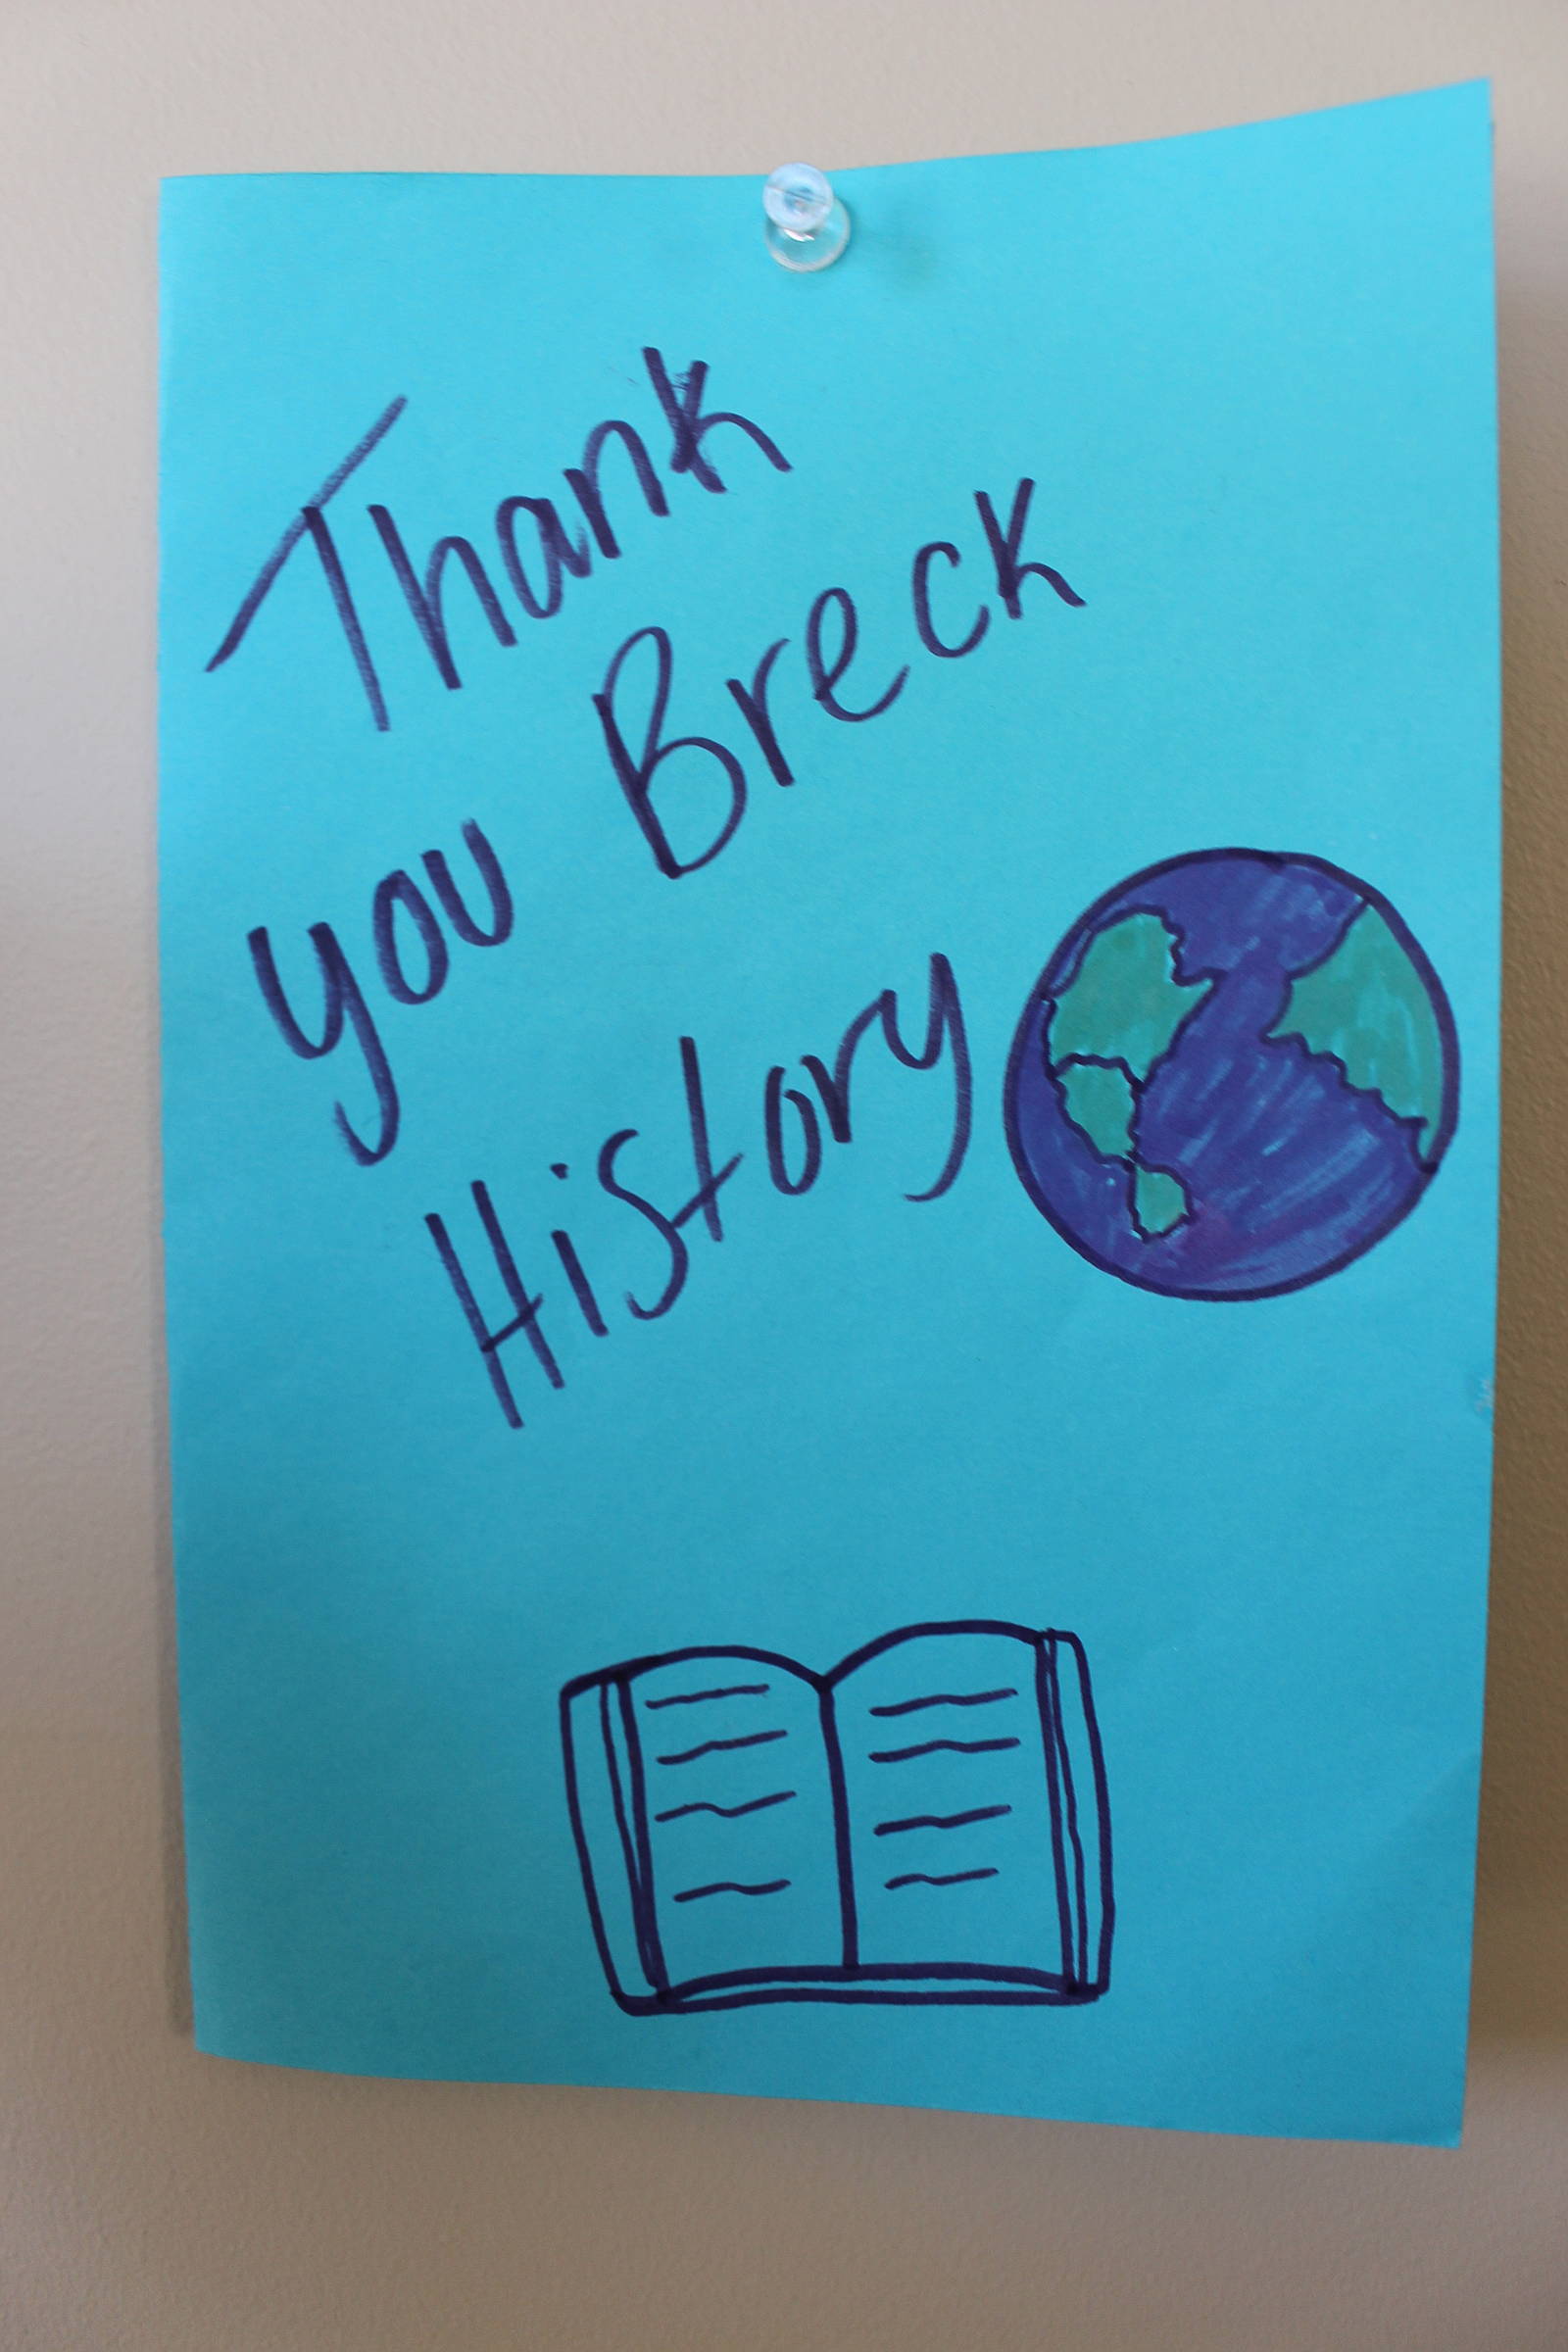 Thank
you Breck
History